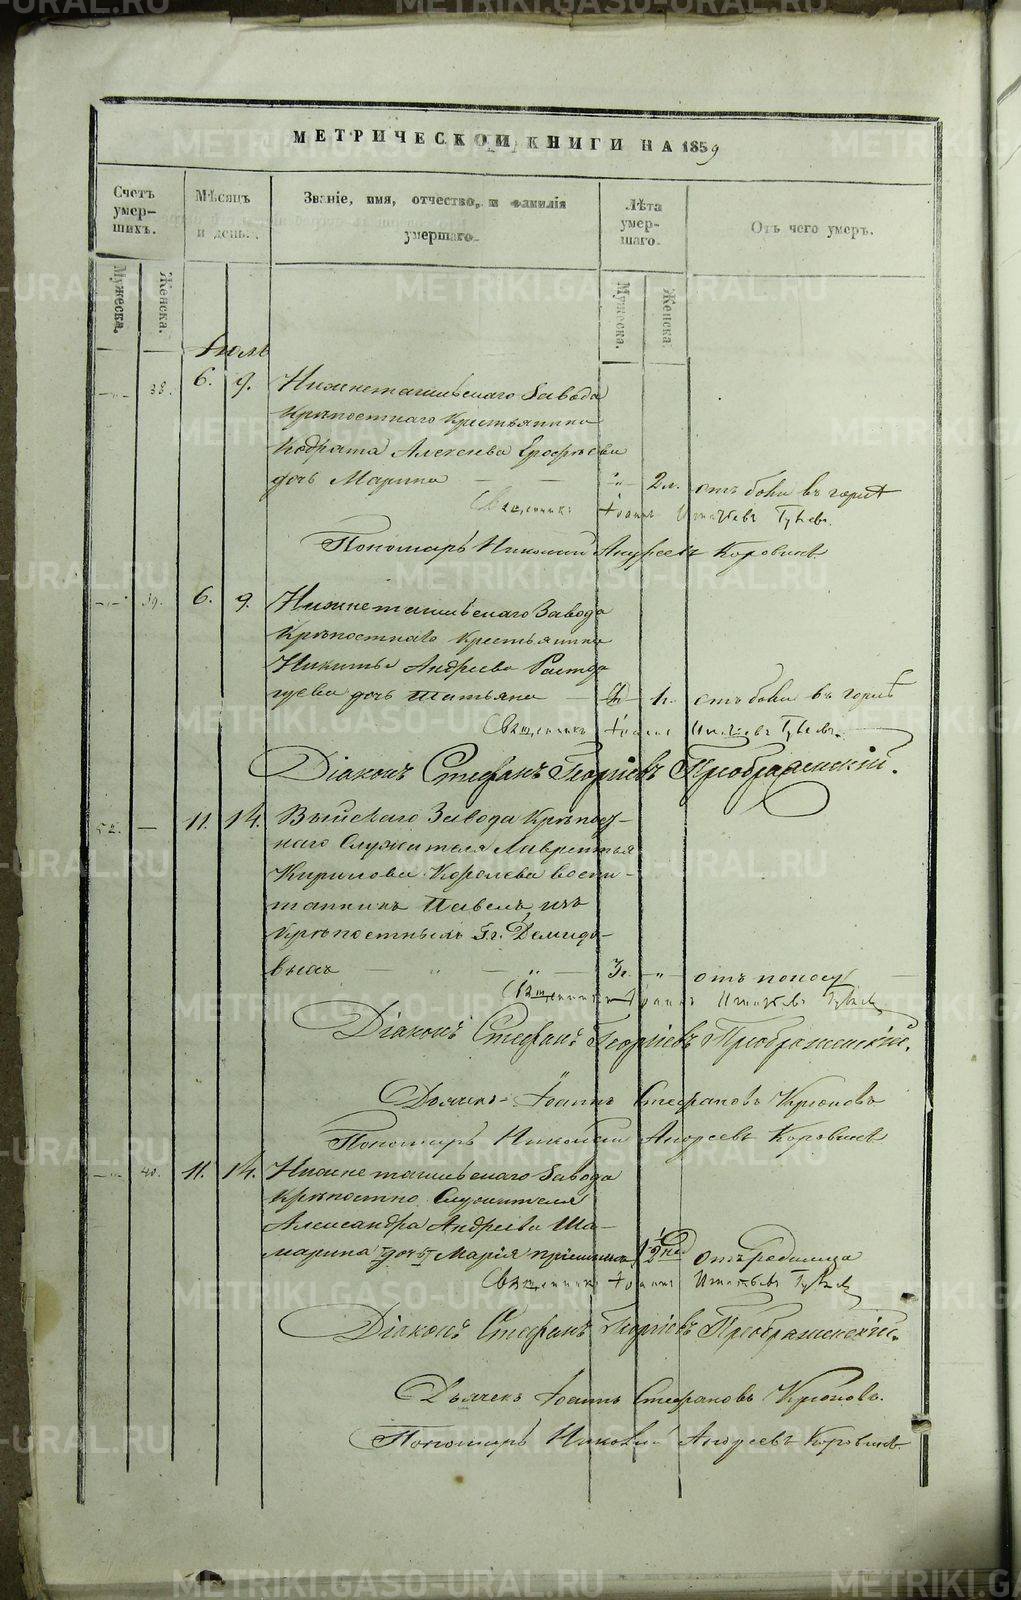 МЕТРИЧЕСКОЙ КНИГИ НА 1859
Счетъ умер-шихъ.
Мѣсяцъ и день.
Званіе, имя, отчество, и фамилія умершаго.
Лѣта умер-шаго.
Отъ чего умеръ.
Мужеска.
Женска.
Мужеска.
Женска.
Іюль
38. 6. 9. Нижнетагильскаго Завода
Крѣпостнаго Крестьянина
Кодрата Алексѣева Ерофѣева
дочь Марина 2 л. отъ боли въ горлѣ
Священникъ Іоаннъ
Пономарь Николай Андреевъ Коровинъ
39. 6. 9. Нижнетагильскаго Завода
Крѣпостнаго Крестьянина
Никиты Андреева
дочь Татьяна 1 г. отъ боли въ горлѣ
Священникъ Іоаннъ
Діаконъ Стефанъ Георгіевъ Преображенскій.
52. — 11. 14. Выйскаго Завода Крѣпост-
наго Служителя Лаврентья
Кирилова Королева воспи-
танникъ Павелъ, изъ
крѣпостныхъ Гг. Демидо-
выхъ — " — " — 3 г. — " — отъ поносу —
Священникъ Іоаннъ
Діаконъ Стефанъ Георгіевъ Преображенскій.
Дьячекъ Іоаннъ Стефановъ Крюковъ
Пономарь Николай Андреевъ Коровинъ
40. 11. 14. Нижнетагильскаго Завода
Крѣпостно Служителя
Александра Андреева Ша-
марина дочь Марія отъ родимца
Священникъ Іоаннъ
Діаконъ Стефанъ Георгіевъ Преображенскій.
Дьячекъ Іоаннъ Стефановъ Крюковъ.
Пономарь Николай Андреевъ Коровинъ
METRIKI.GASO-URAL.RU